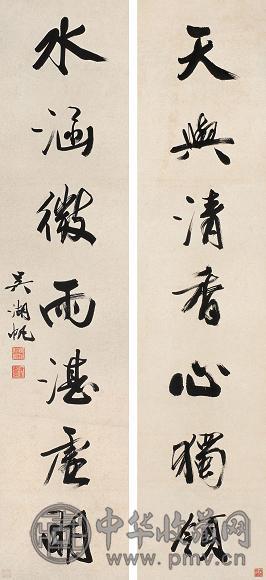 天與清香心獨領
水涵微雨湛虛明
吳湖帆
中华收藏网
www.pmv.cn